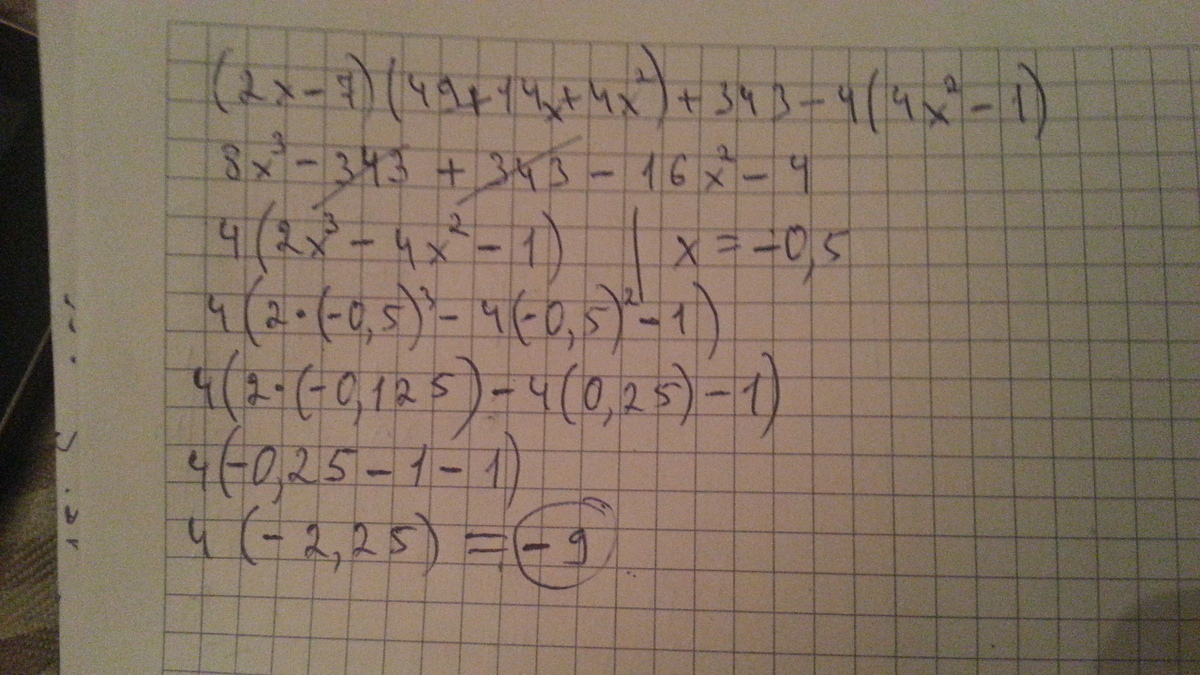 (2x-7)(49+14x+4x²)+343-4(4x²-1)
8x³-343+343-16x²-4
4(2x³-4x²-1) | x=-0,5
4(2·(-0,5)³-4(-0,5)²-1)
4(2·(-0,125)-4(0,25)-1)
4(-0,25-1-1)
4(-2,25)=-9